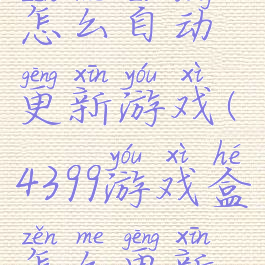 怎么自动
gēng xīn yóu xì
更新游戏(
yóu xì hé
4399游戏盒
zěn me gēng xīn
怎么更新